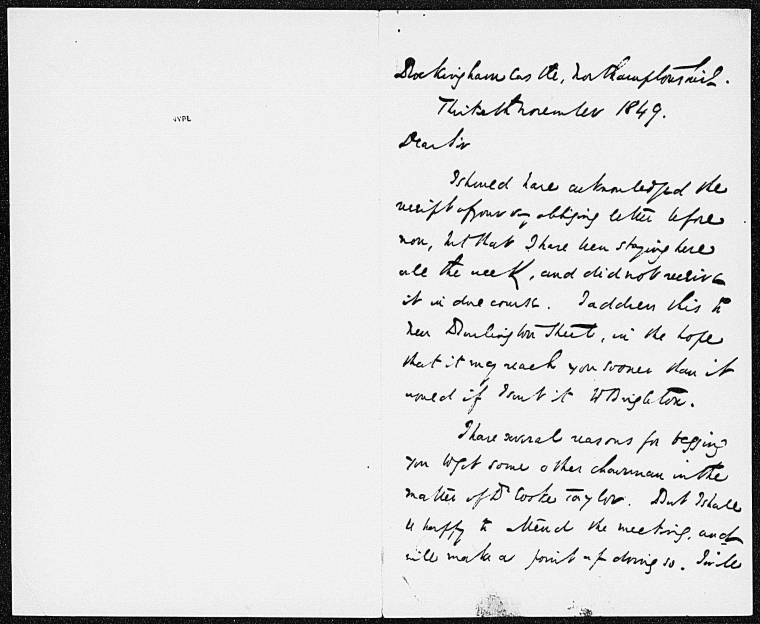 NYPL
Rockingham Castle, Northamptonshire.
Thirtieth November 1849.
Dear Sir
I should have acknowledged the
receipt of your very obliging letter before
now, but that I have been staying here
all the week, and did not receive
it in due course. I address this to
New Burlington Street, in the hope
that it may reach you sooner than it
would if I sent it to Brighton.
I have several reasons for begging
you to get some other chairman in the
matter of Dr Cooke Taylor. But I shall
be happy to attend the meeting, and
will make a point of doing so. I will